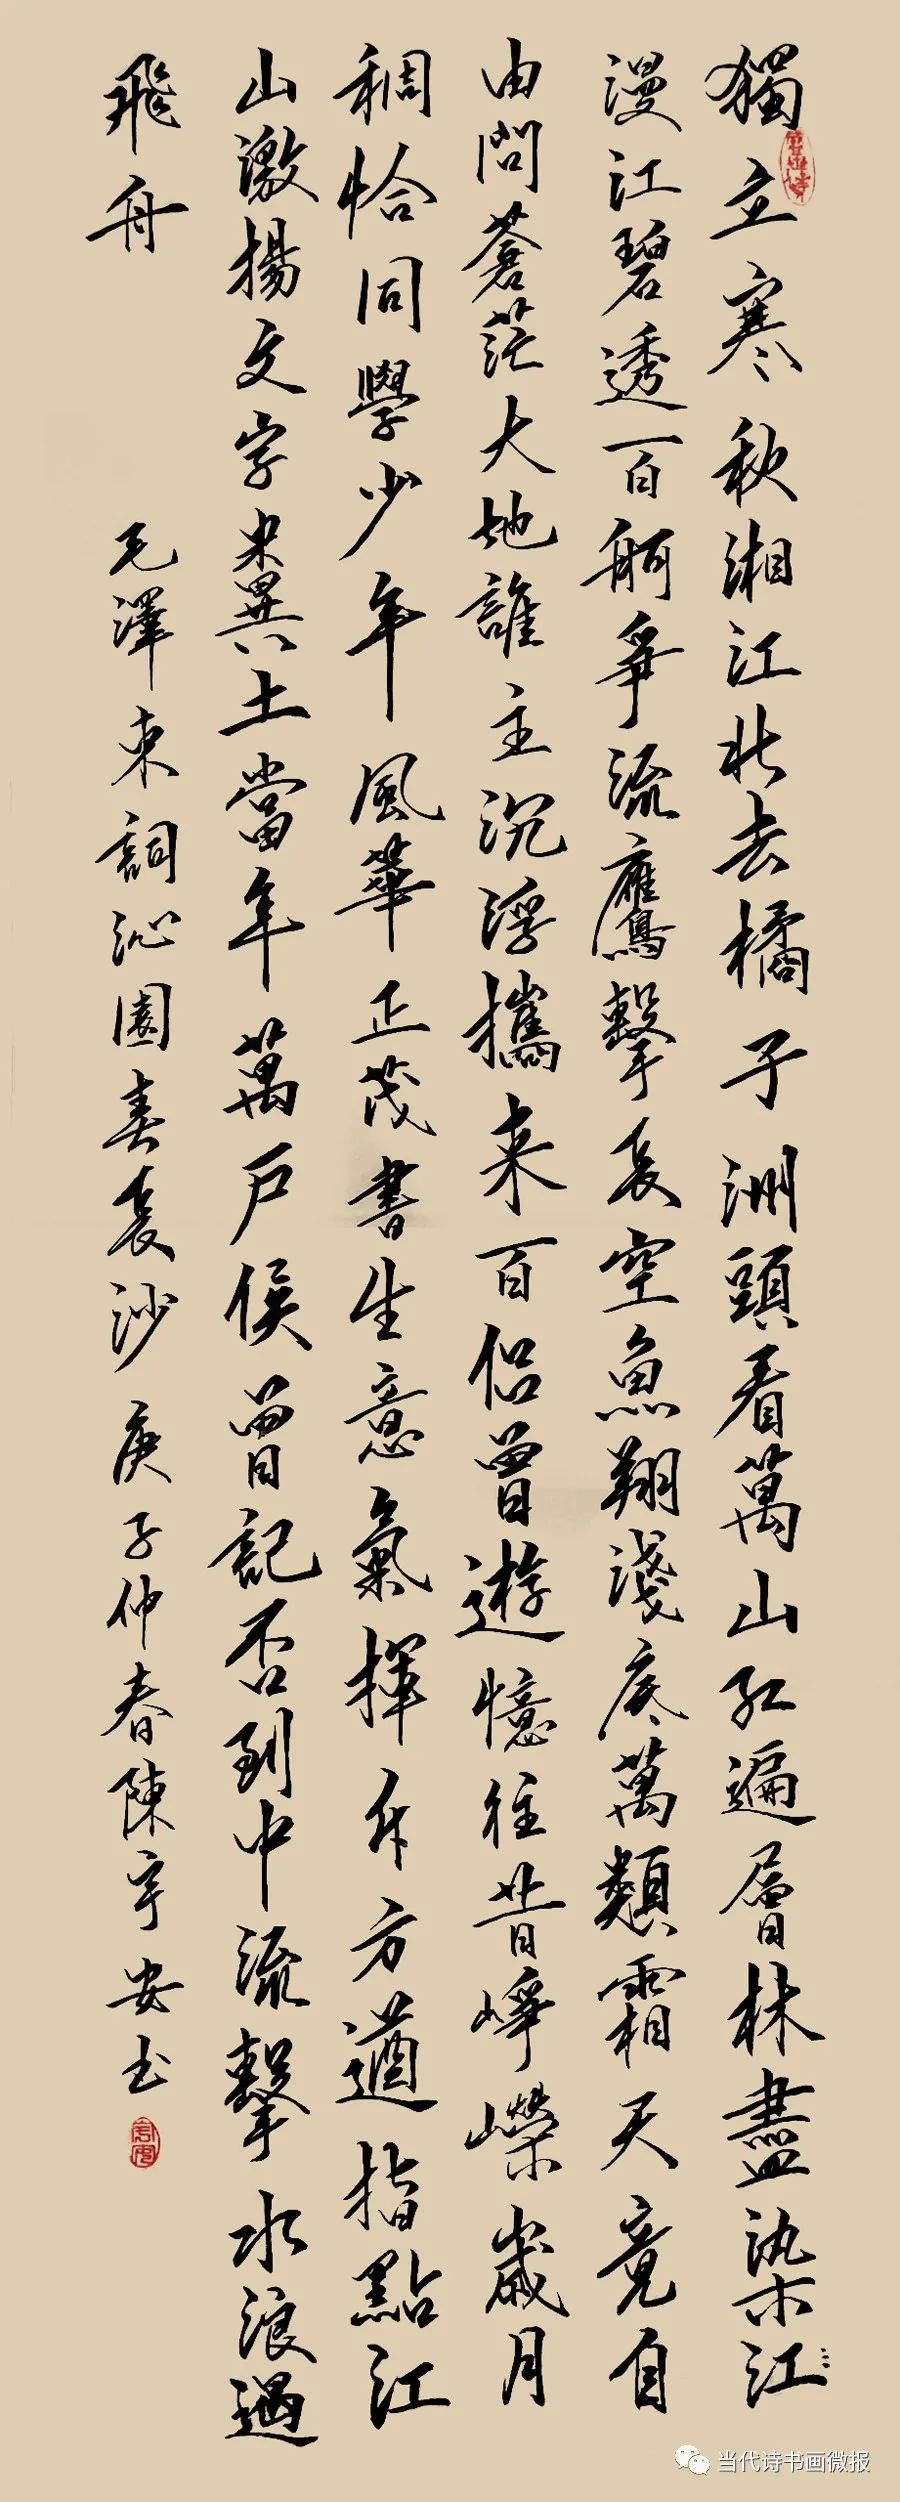 獨立寒秋湘江北去橘子洲頭看萬山紅遍層林盡染江
漫江碧透百舸爭流鷹擊長空魚翔淺底萬類霜天竟自
由問蒼茫大地誰主沉浮攜来百侶曾遊憶往昔崢嶸歲月
稠恰同學少年風華正茂書生意氣揮斥方遒指點江
山激揚文字糞土當年萬戶侯曾記否到中流擊水浪遏
飛舟
毛澤東詞沁園春長沙 庚子仲春陳宇安书
当代诗书画微报